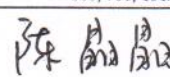 陈晶晶